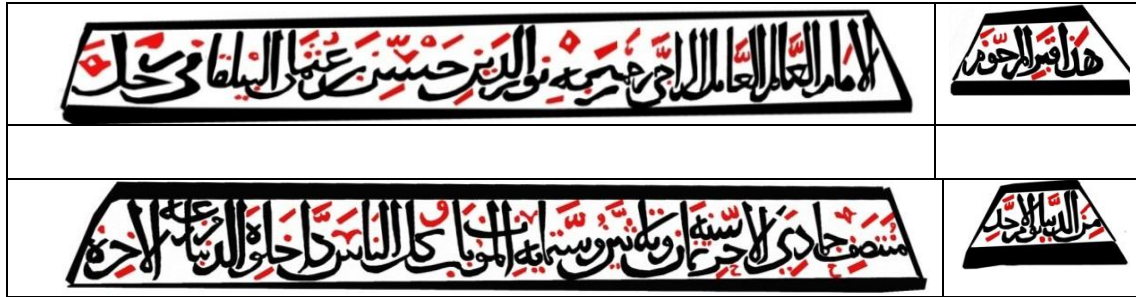 هذا قبر المرحوم
الامام العالم العامل الراجى رحمة ربه نور الدين حسن بن عثمان البيلقانى رحل
من الدنيا يوم الاحد
منتصف جمادى الاخر سنة ثمان وستمايه الموت باب كل الناس داخله الدنيا مزرعة الاخرة